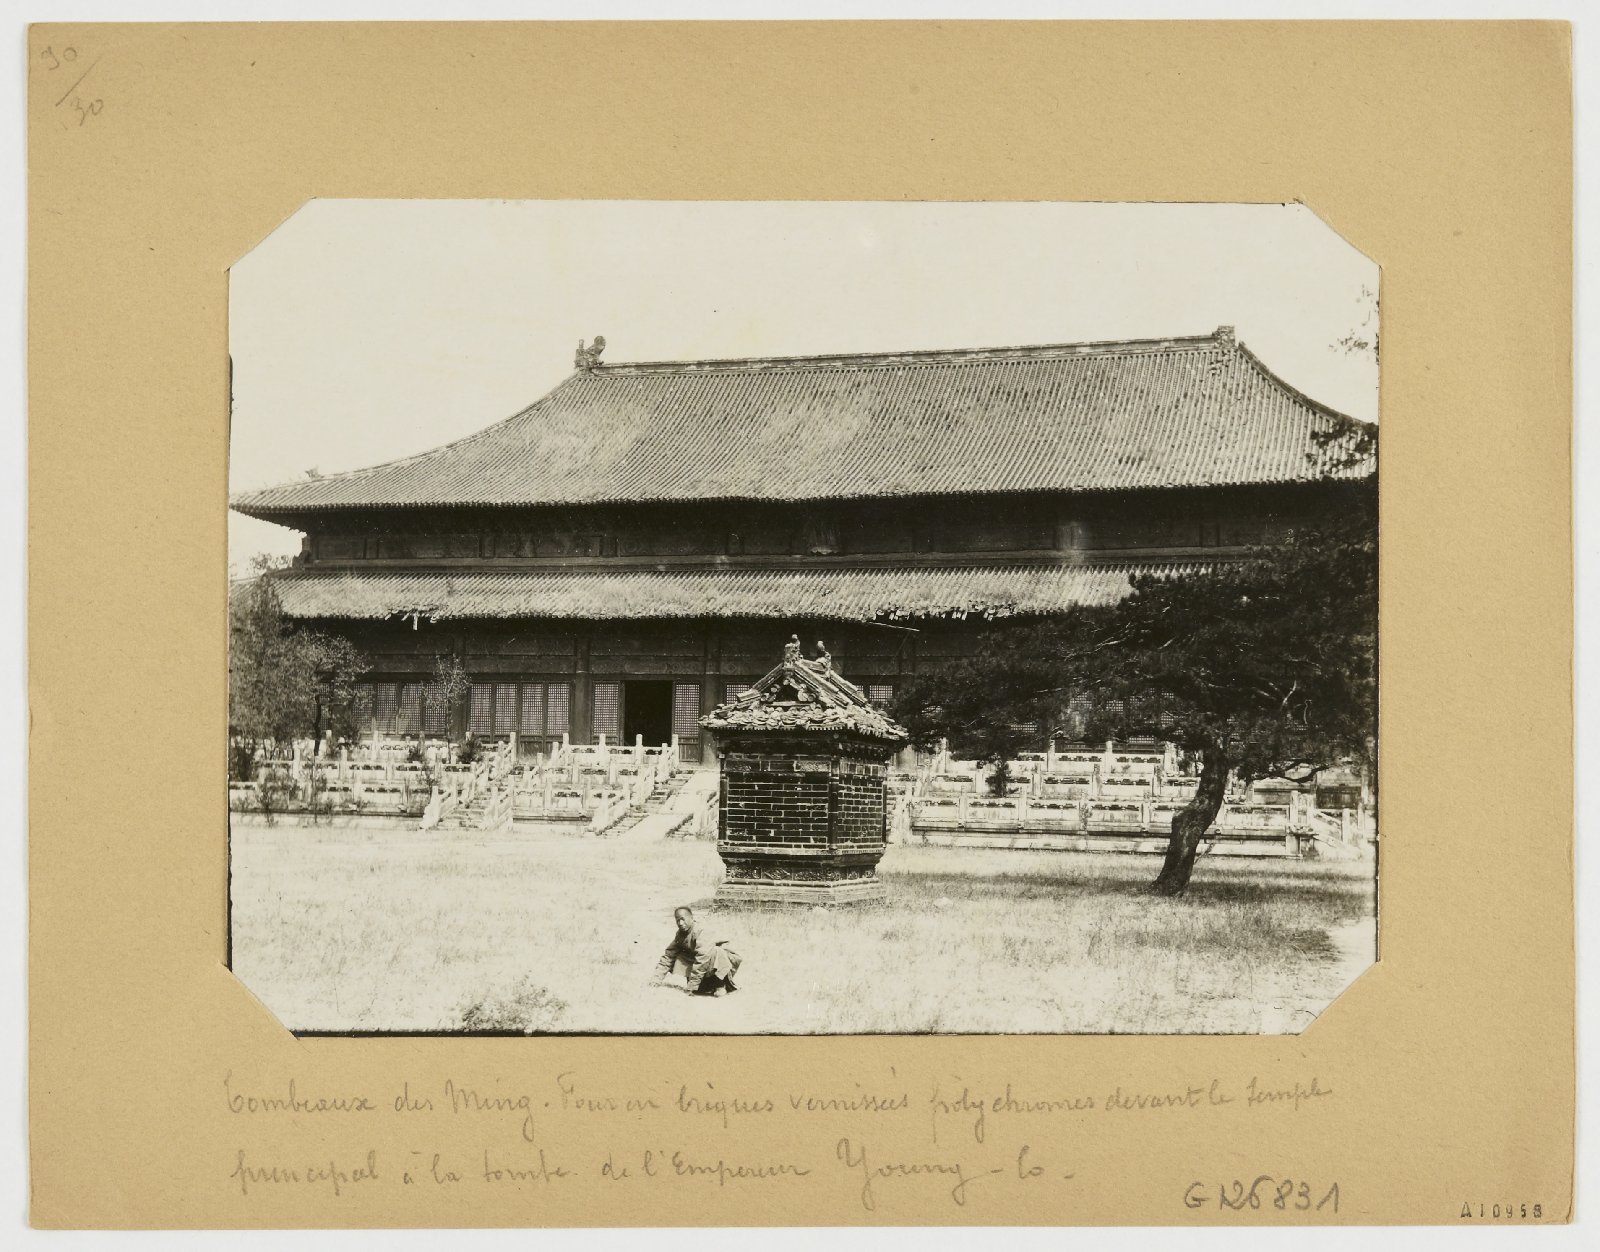 90
30
Tombeaux des Ming. Four en briques vernissées polychromes devant le temple
principal à la tombe de l'Empereur Young-lo-
G126831
A10958